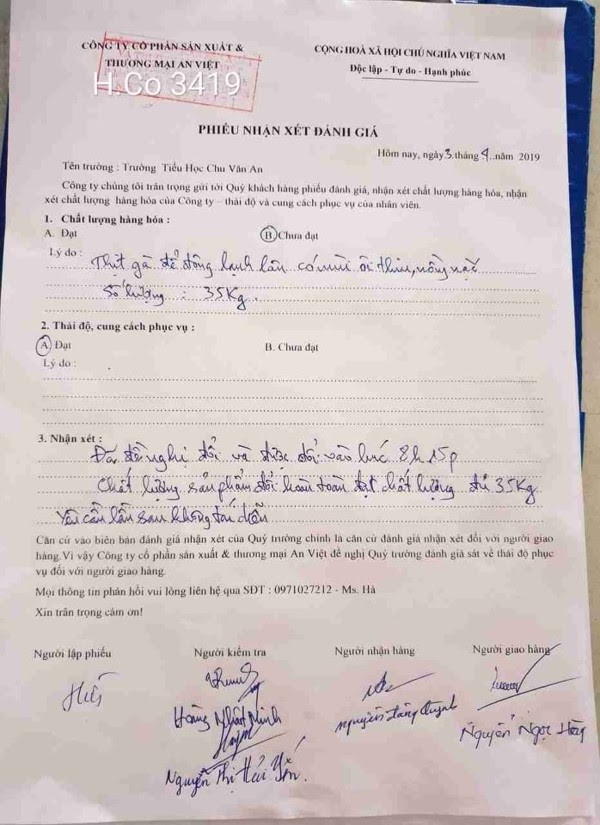 CÔNG TY CỔ PHẦN SẢN XUẤT &
THƯƠNG MẠI AN VIỆT
H.Co 3419
CỘNG HOÀ XÃ HỘI CHỦ NGHĨA VIỆT NAM
Độc lập - Tự do - Hạnh phúc
PHIẾU NHẬN XÉT ĐÁNH GIÁ
Hôm nay, ngày 3 tháng 4 năm 2019
Tên trường : Trường Tiểu Học Chu Văn An
Công ty chúng tôi trân trọng gửi tới Quý khách hàng phiếu đánh giá, nhận xét chất lượng hàng hóa, nhận
xét chất lượng hàng hóa của Công ty – thái độ và cung cách phục vụ của nhân viên.
1. Chất lượng hàng hóa :
A. Đạt
B. Chưa đạt
Lý do : Thịt gà để đông lạnh lâu có mùi ôi thiu, nồng nặc
Số lượng : 35Kg.
2. Thái độ, cung cách phục vụ :
A. Đạt
B. Chưa đạt
Lý do :
3. Nhận xét :
Đã đề nghị đổi và được đổi vào lúc 8h15p
Chất lượng sản phẩm đổi hoàn toàn đạt chất lượng đủ 35Kg
Yêu cầu lần sau không tái diễn
Căn cứ vào biên bản đánh giá nhận xét của Quý trường chính là căn cứ đánh giá nhận xét đối với người giao
hàng.Vì vậy Công ty cổ phần sản xuất & thương mại An Việt đề nghị Quý trường đánh giá sát về thái độ phục
vụ đối với người giao hàng.
Mọi thông tin phản hồi vui lòng liên hệ qua SĐT : 0971027212 - Ms. Hà
Xin trân trọng cảm ơn!
Người lập phiếu
Người kiểm tra
Người nhận hàng
Người giao hàng
Hoàng Nhật Minh
Nguyễn Thị Hải Yến.
Nguyễn Quỳnh
Nguyễn Ngọc